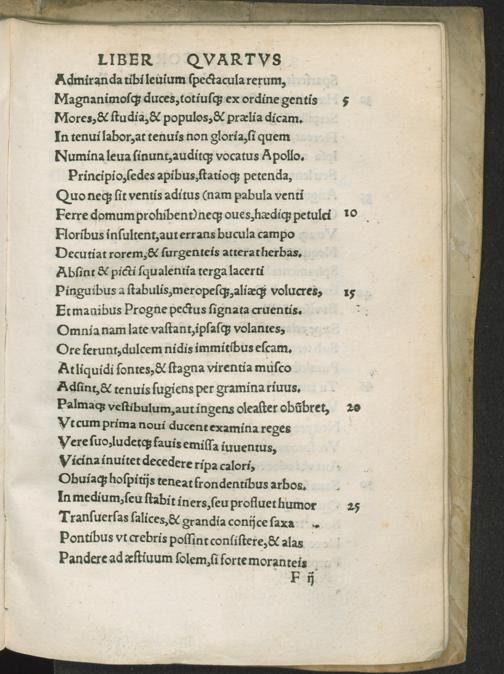 LIBER QVARTVS
Admiranda tibi leuium spectacula rerum,
Magnanimosq; duces, totiusq; ex ordine gentis 5
Mores, & studia, & populos, & prælia dicam.
In tenui labor, at tenuis non gloria, si quem
Numina leua sinunt, auditq; vocatus Apollo.
Principio, sedes apibus, statioq; petenda,
Quo neq; sit ventis aditus (nam pabula venti
Ferre domum prohibent) neq; oues, hædiq; petulci 10
Floribus insultent, aut errans bucula campo
Decutiat rorem, & surgenteis atterat herbas.
Absint & picti squalentia terga lacerti
Pinguibus a stabulis, meropesq;, aliæq; volucres, 15
Et manibus Progne pectus signata cruentis.
Omnia nam late vastant, ipsasq; volantes,
Ore ferunt, dulcem nidis immitibus escam.
At liquidi fontes, & stagna virentia musco
Adsint, & tenuis fugiens per gramina riuus.
Palmaq; vestibulum, aut ingens oleaster obũbret, 20
Vt cum prima noui ducent examina reges
Vere suo, ludetq; fauis emissa iuuentus,
Vicina inuitet decedere ripa calori,
Obuiaq; hospitijs teneat frondentibus arbos.
In medium, seu stabit iners, seu profluet humor 25
Transuersas salices, & grandia conijce saxa
Pontibus vt crebris possint consistere, & alas
Pandere ad æstiuum solem, si forte moranteis
F ij